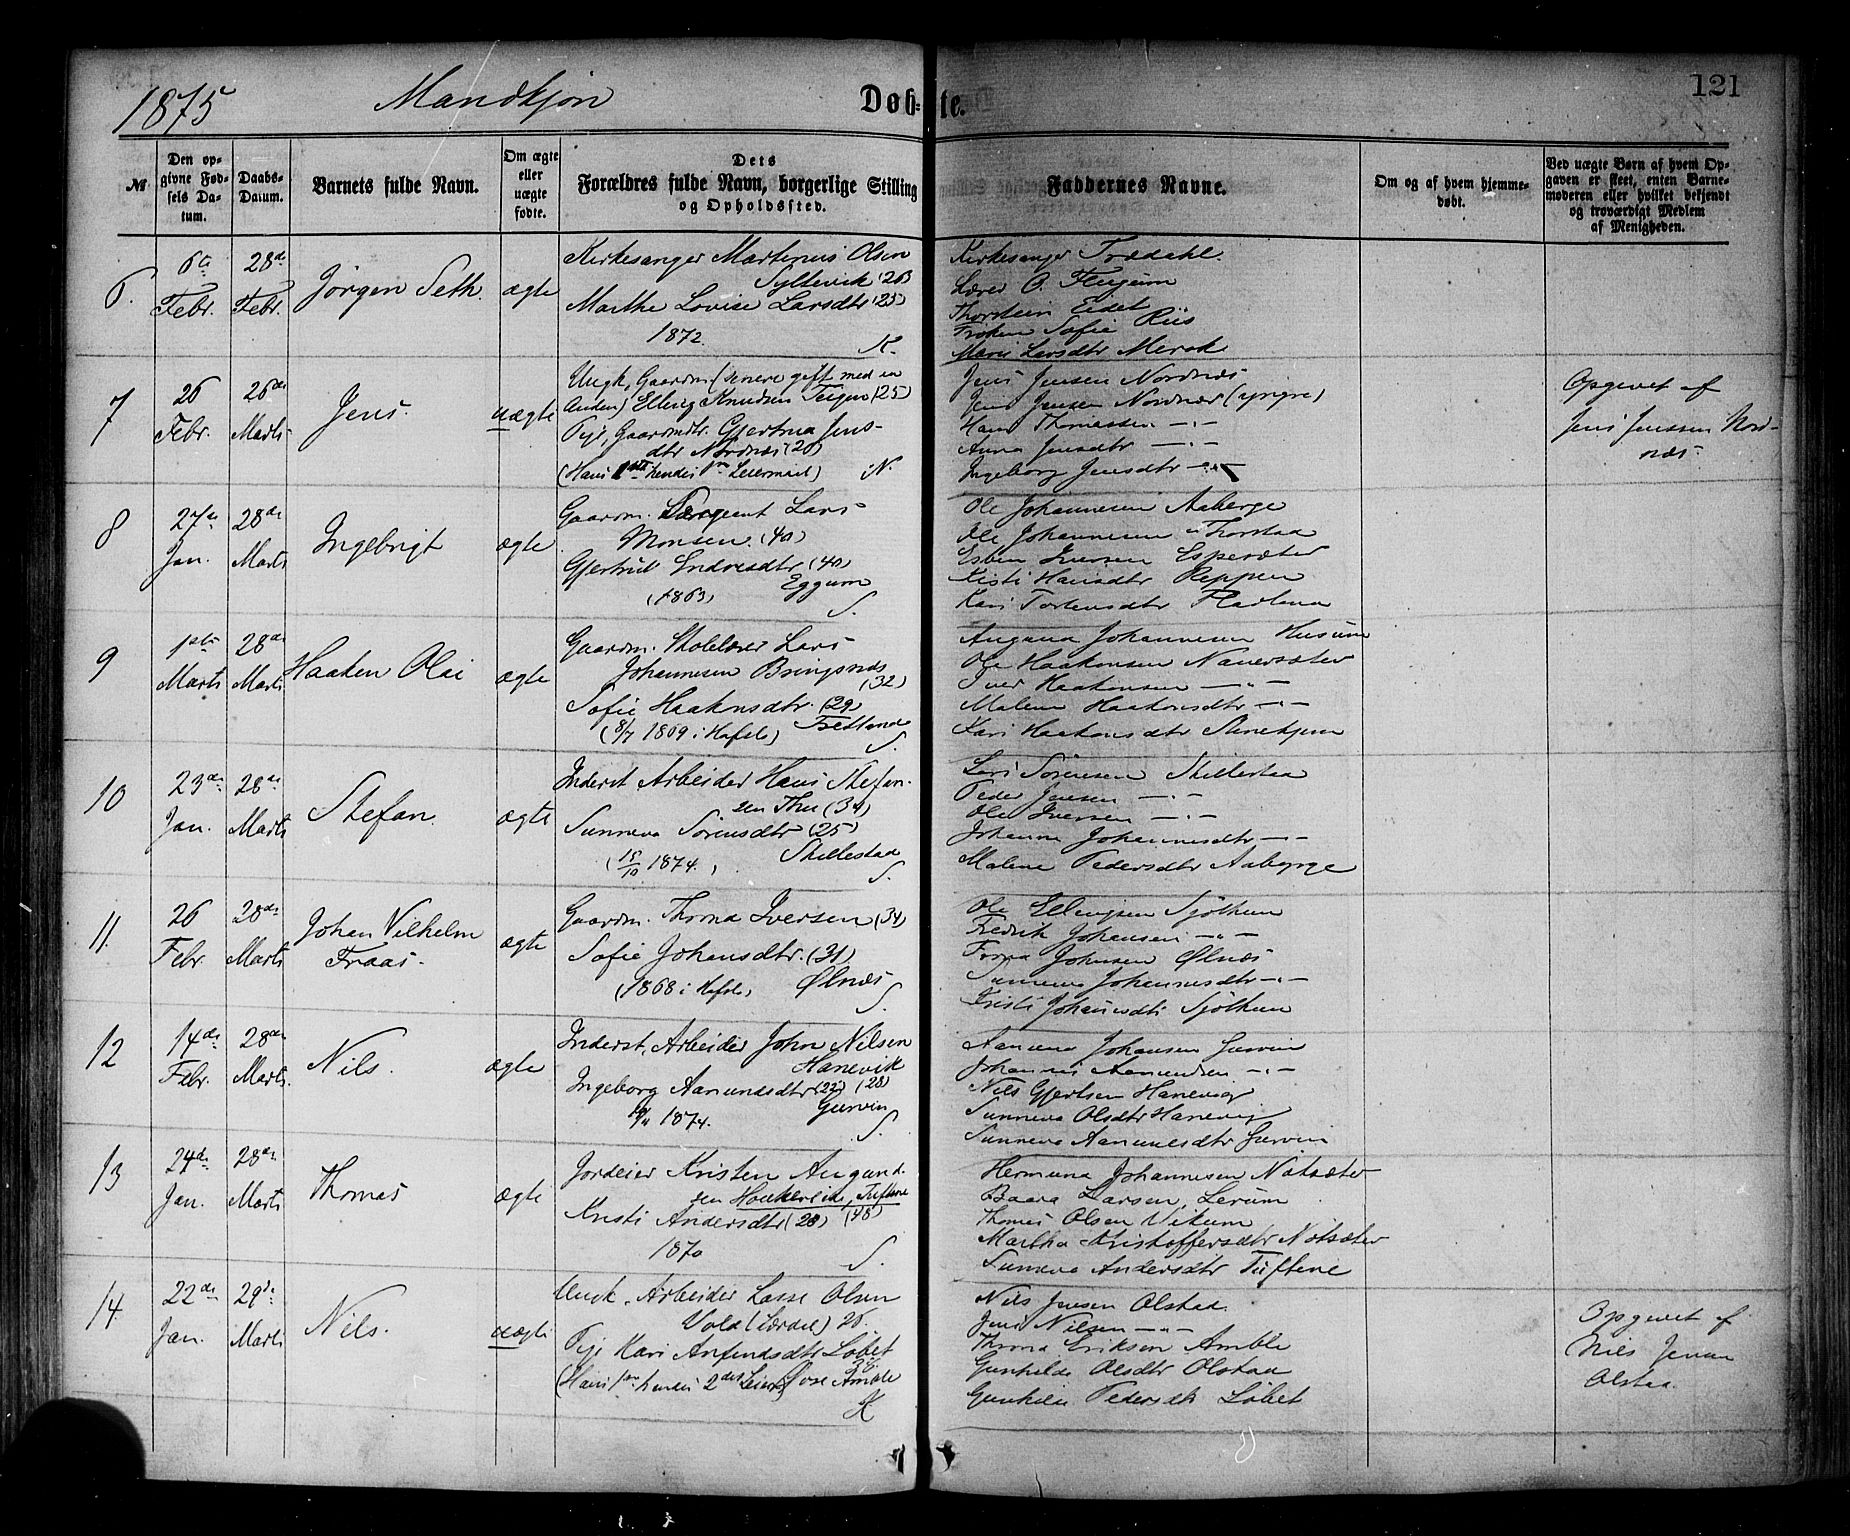 1875 Mandkjøn Døb-te. 121
№
Den op-
givne Fød-
sels Da-
tum.
Daabs-
Datum.
Barnets fulde Navn.
Om ægte
eller
uægte
fødte.
Dets
Forældres fulde Navn, borgerlige Stilling
og Opholdssted.
Faddernes Navne.
Om og af hvem hjemme-
døbt.
Ved uægte Børn af hvem Op-
gaven er skeet, enten Barne-
moderen eller hvilket bekjendt
og troværdigt Medlem
af Menigheden.
6.
6te
Febr.
28de
Febr.
Jørgen Seth.
ægte
Kirkesanger Martinus Olsen
Syltevik (26)
Marthe Lovise Larsdtr (25)
1872.
K.
Kirkesanger Trædahl.
Lærer O. Flugum
Thorstein Eidet
Frøken Sofie Riis
Marie Larsdtr Merok
7
26
Febr.
26de
Marts
Jens.
uægte
Ungk, Gaardm (senere gift med en
Anden) Elling Knudsen Teigen (25)
Pige, Gaardmdtr. Gjertrud Jens-
dtr Nordnæs (20)
(Hans 1ste hendes 1ste Leiermaal) N.
Jens Jensen Nordnæs
Jens Jensen Nordnæs (yngre)
Hans Thomassen -"-
Anna Jensdtr -"-
Ingeborg Jensdtr -"-
Opgevet af
Jens Jenssen Nord-
næs.
8
27de
Jan.
28de
Marts
Ingebrigt
ægte
Gaardm. Sergeant Lars
Monsen. (40)
Gjertrud Endresdtr (40)
Eggum
(1863)
S.
Ole Johannesen Aaberge
Ole Johannesen Thorstad
Esben Iversen Espesæter
Kisti Hansdtr Reppen
Kari Torkensdtr
9
1ste
Marts
28de
Marts
Haaken Olai
ægte
Gaardm. Skolelærer Lars
Johannesen Bringsnæs
(32)
Sofie Haakonsdtr. (29)
(8/7 1869 i Hafslo) Tretland
S.
Augund Johannesen Husum
Ole Haakonsen Navarsæter
Iver Haakonsen -"-
Malene Haakonsdtr -"-
Kari Haakonsdtr
10
23de
Jan.
28de
Marts
Stefan.
ægte
Inderst Arbeider Hans Stefan-
sen Thu (34)
Sunneva Sørensdtr (25)
(15/10 1874.) Skillestad
S.
Lars Sørensen Skillestad
Peder Jensen -"-
Ole Iversen -"-
Johanna Johannesdtr -"-
Malene Pedersdtr Aaberge
11.
26
Febr.
28de
Marts
Johan Vilhelm
Fraas.
ægte
Gaardm. Thomas Iversen (34)
Sofie Johansdtr. (31)
(1868 i Hafslo) Ølnæs
S.
Ole Ellingsen Sjøthun
Fredrik Johansen -"-
Johnsen Ølnæs
Sunneva Johannesdtr -"-
Kristi Johannesdtr Sjøthun
12
14de
Febr.
28de
Marts.
Nils.
ægte
Inderst, Arbeider John Nilsen
Hanevik
Ingeborg Aamundsdtr (22) (28)
Gurvin
1874.
S.
Aamund Johansen Gurvin
Johannes Aamundsen -"-
Nils Gjertsen Hanevig
Sunneva Olsdtr Hanevig
Sunneva Aamundsdtr Gurvin
13
24de
Jan.
28de.
Marts
Thomas
ægte
Jordeier Kristen Augund-
sen Tuftene
Kristi Andersdtr (28) (48)
1870
S.
Hermund Johannesen Natsæter
Baard Larsen, Lerum
Thomas Olsen Vikum
Martha Kristoffersdtr Natsæter
Sunneva Andersdtr Tuftene
14
22de
Jan.
29de
Marts
Nils.
uægte
Ungk. Arbeider Lasse Olsen
Vold (Lærdal) 26.
Pige Kari Anfindsdtr Løbet
(Hans 1ste hendes 2det Leierm) Amble
K
Nils Jensen Olstad.
Jens Nilsen -"-
Thomas Erikson Amble
Gunhilde Olsdtr Olstad
Gunhild Pedersdtr Løbet
Opgevet af
Nils Jensen
Olstad.